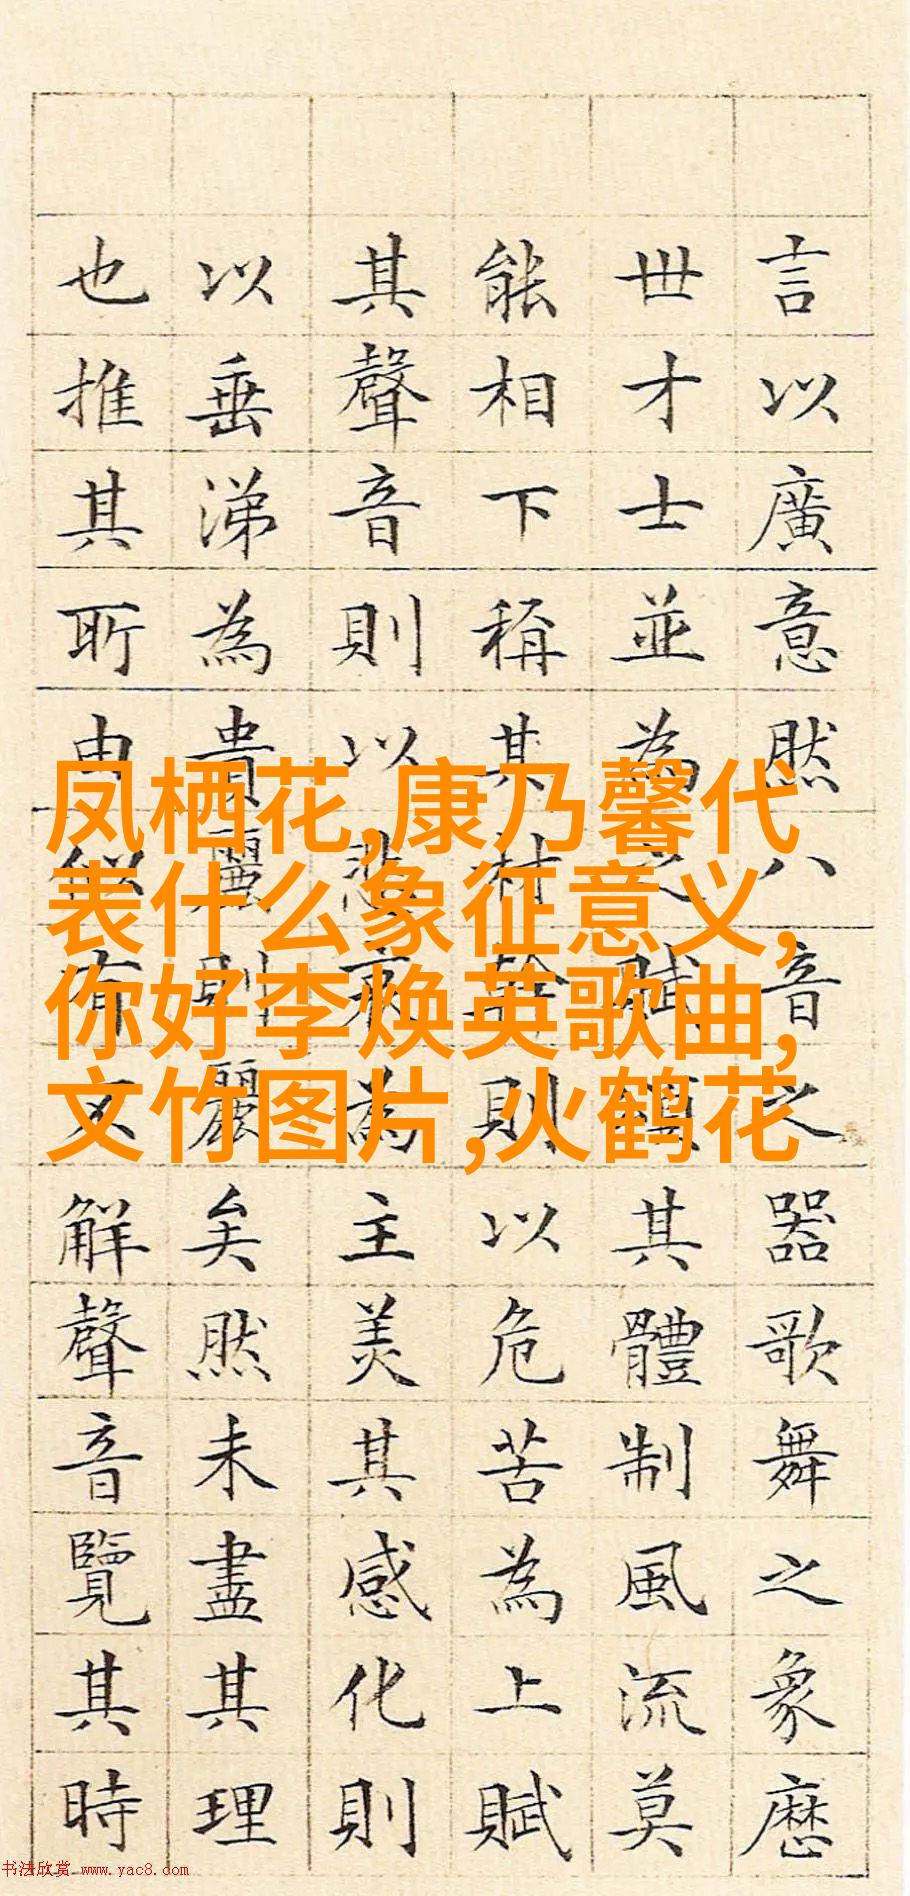 言以廣意然八音之器歌舞之象歷
世才士並為之賦頌其體制風流莫
能相下稱其材幹則以危苦為上賦
其聲音則以悲哀為主美其感化則
以垂涕為貴麗則麗矣然未盡其理
也推其所由解聲音覽其時
凤栖花,康乃馨代
表什么象征意义,
你好李焕英歌曲,
文竹图片,火鹤花
书法欣赏 www.yac8.com